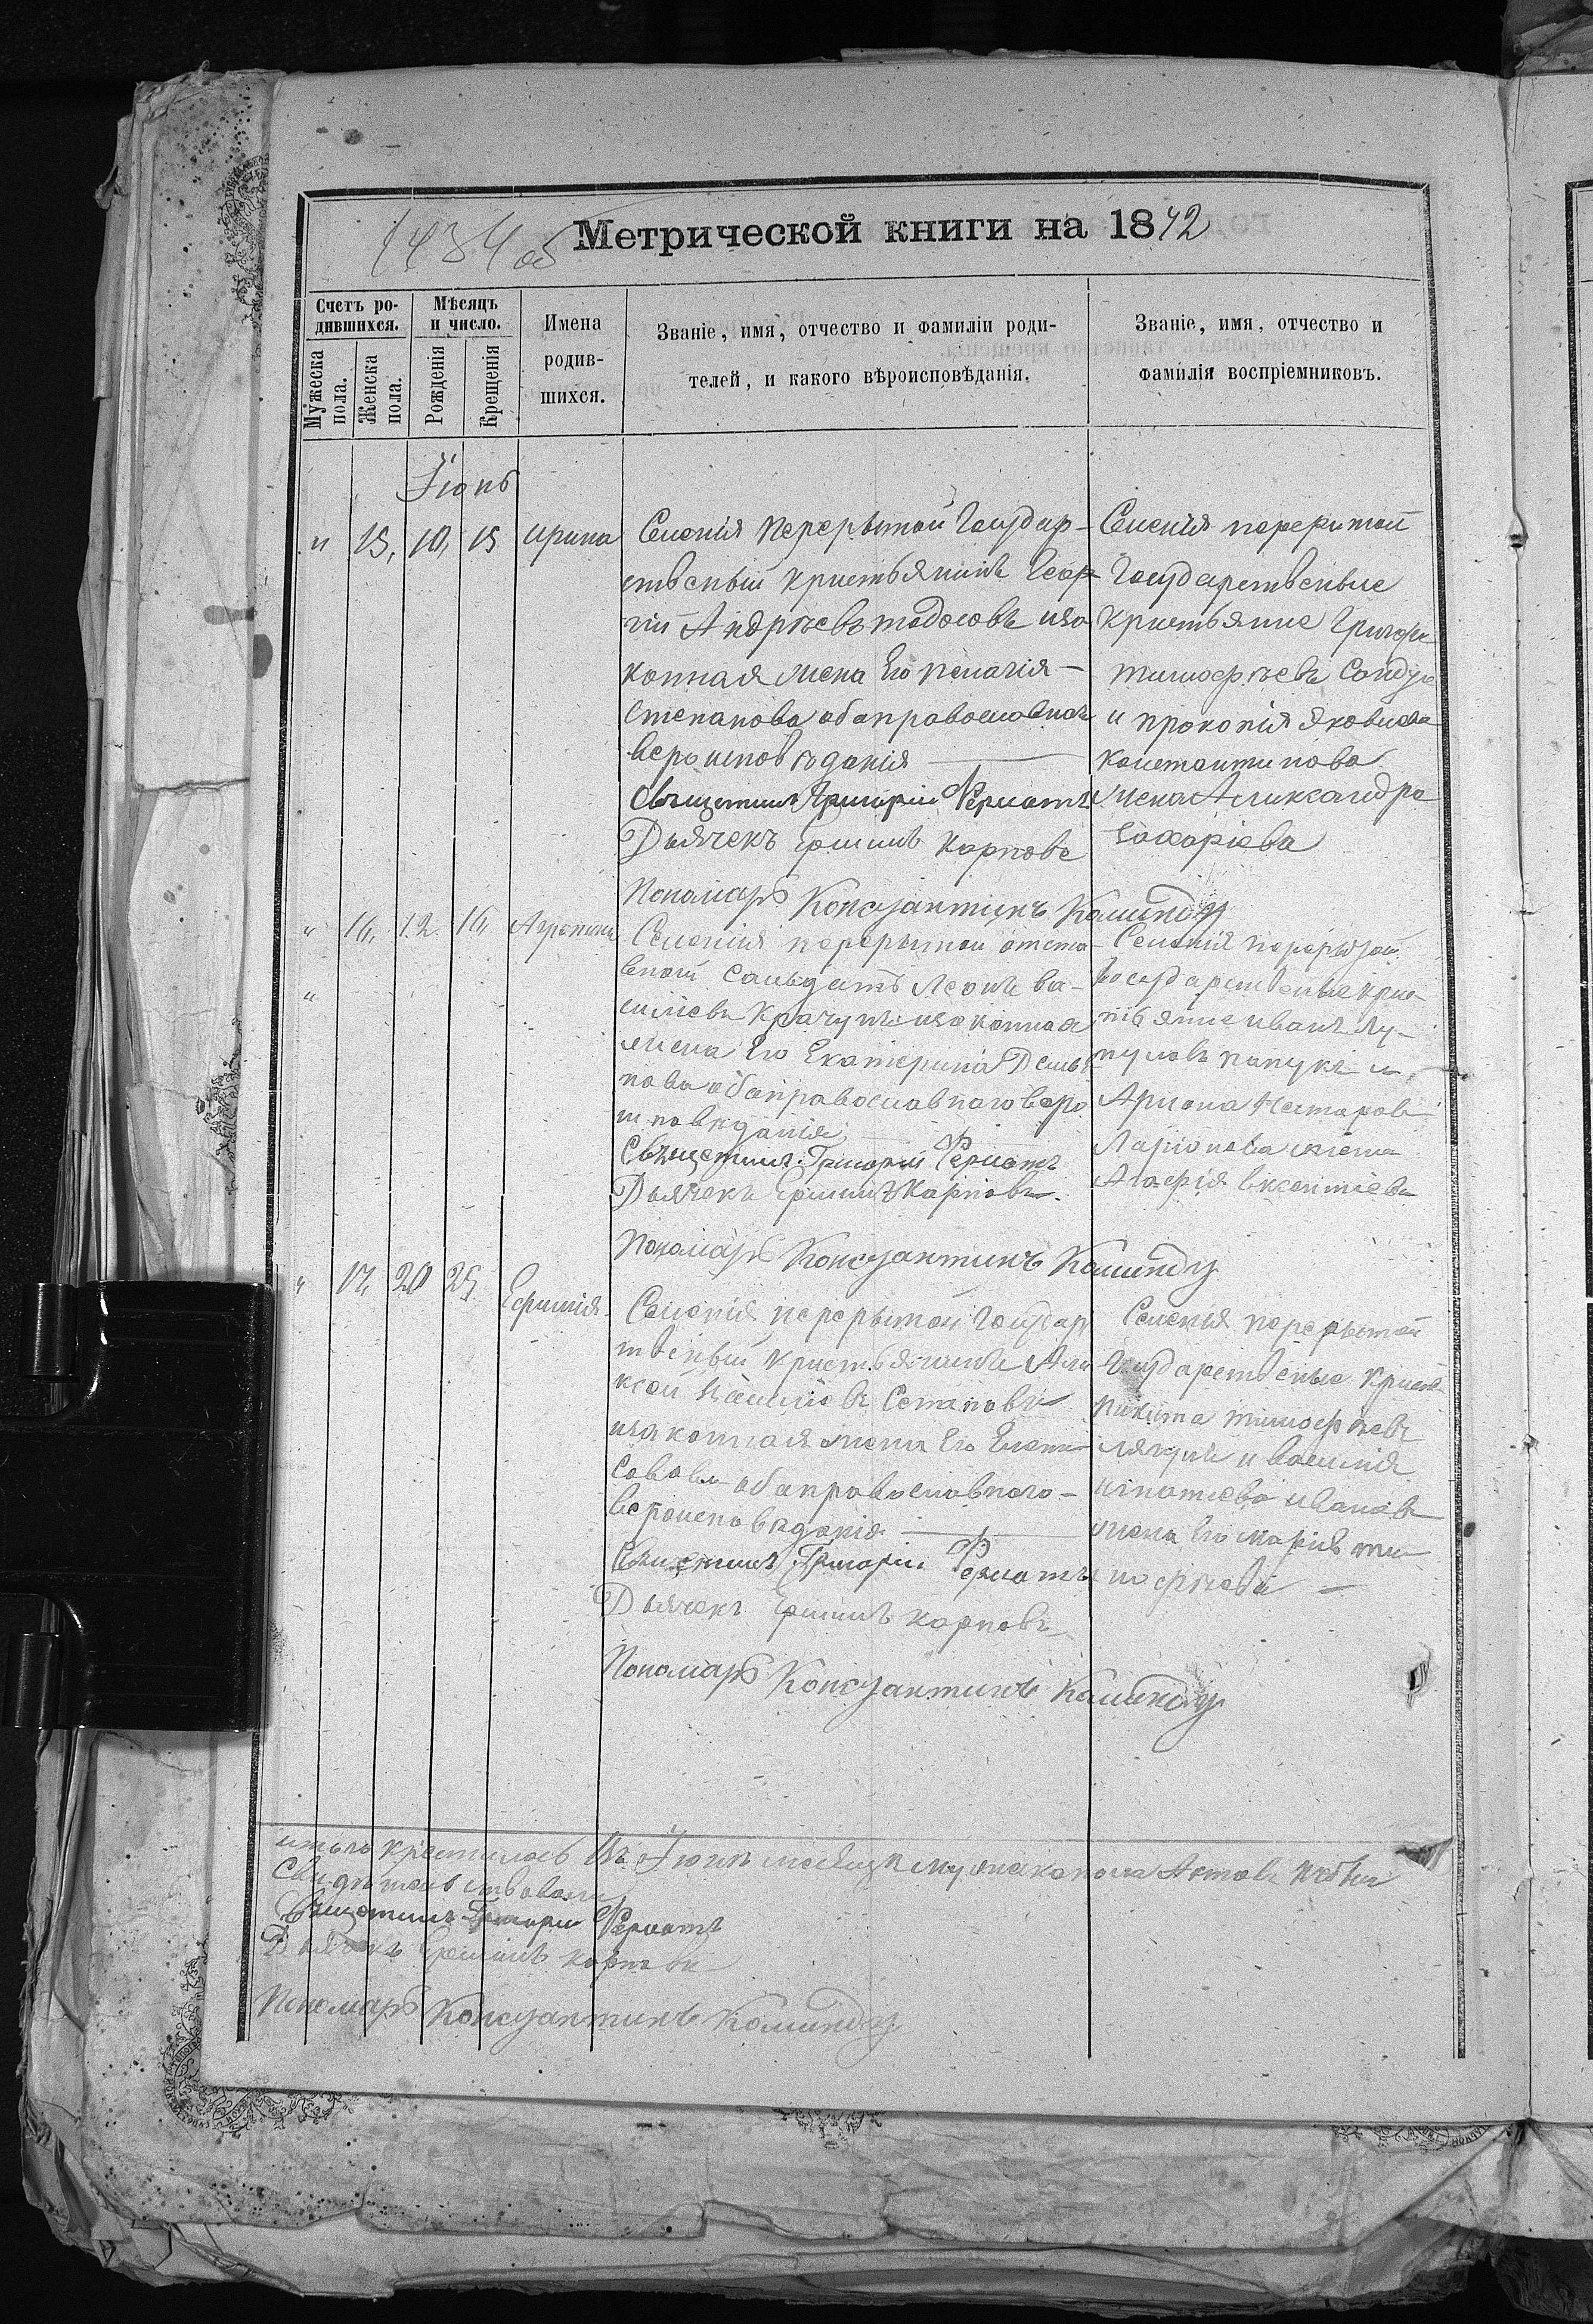 1434 об
Метрической книги на 1872
Счетъ ро-
дившихся.
Мужеска
пола.
Женска
пола.
Мѣсяцъ
и число.
Рожденія
Крещенія
Имена
родив-
шихся.
Званіе, имя, отчество и фамиліи роди-
телей, и какого вѣроисповѣданія.
Званіе, имя, отчество и
фамилія воспріемниковъ.
Іюнь
" 15, 10, 15 Ирина
Селенія Перерытой Государ-
ственый кристьянинъ Геор-
гій Андрѣевъ тодосовъ иза-
конная жена Его пелагія
степанова оба православнаг
вероисповѣданія
Свещенникъ Григорій
Дьячекъ Ефимъ карповъ
Пономарь Константинъ
Селенія перерытой
Государственые
кристьяне Григори
тимоѳѣевъ
и прокопія Яковлева
константинова
жена Александра
Захаріева
" 16, 12. 16, Агрепина
"
Селенія перерытой отста
вной салдатъ Леонъ ва-
силіевъ Крачунъ изаконная
жена Его Екатерина Демья
нова оба православнаго веро
исповѣданія
Свещенникъ Григорій
Дьячекъ Ефимъ Карповъ.
Пономарь Константинъ
Селенія перерытой
Государственые крис-
тьяне иванъ Лу-
пуловъ
Аріона Нестаров
Ларіонова жена
Агафія
" 17, 20 25 Ефимія
Селенія перерытой Государ
твеный кристьянинъ Але
ксей Василіовъ
изаконная жена Его Елена
Савова оба православнаго -
вероисповѣданія
Свещенникъ Григорій
Дьячекъ Ефимъ карповъ
Пономарь Константинъ
Селенія перерытой
Государственые
Никита тимоѳѣевъ
и василія
игнатіева иванов
жена Его марія ти
моѳѣева
итого крестилось въ Іюнѣ
Свидетельствовали
Свещенникъ Григорій
Дьячекъ Ефимъ карповъ
Пономарь Константинъ